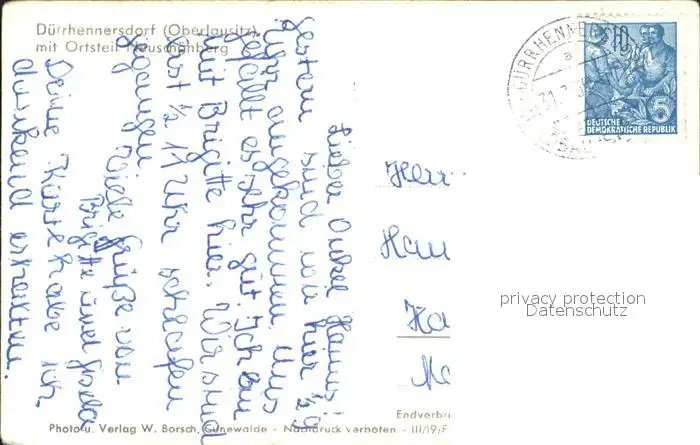 Dürrhennersdorf (Oberlausitz)
mit Ortsteil Neuschönberg
Lieber Onkel Hannus!
sind wir hier 1/2 9
gestern
Uhr angekommen. Uns
gefällt es sehr gut. Ich bin
mit Brigitte hier. Wir sind
erst 1/2 11 Uhr schlafen
gegangen.
Viele Grüße von
Brigitte und Gisela
Deine Karte habe ich
dankend erhalten.
Herr
Han
Ha
Ma
DÜRRHENNERSDORF
a
31.7.
DEUTSCHE
DEMOKRATISCHE REPUBLIK
5
privacy protection
Datenschutz
Endverbr
Photo u. Verlag W. Borsch, Cunewalde - Nachdruck verboten - III/19/F